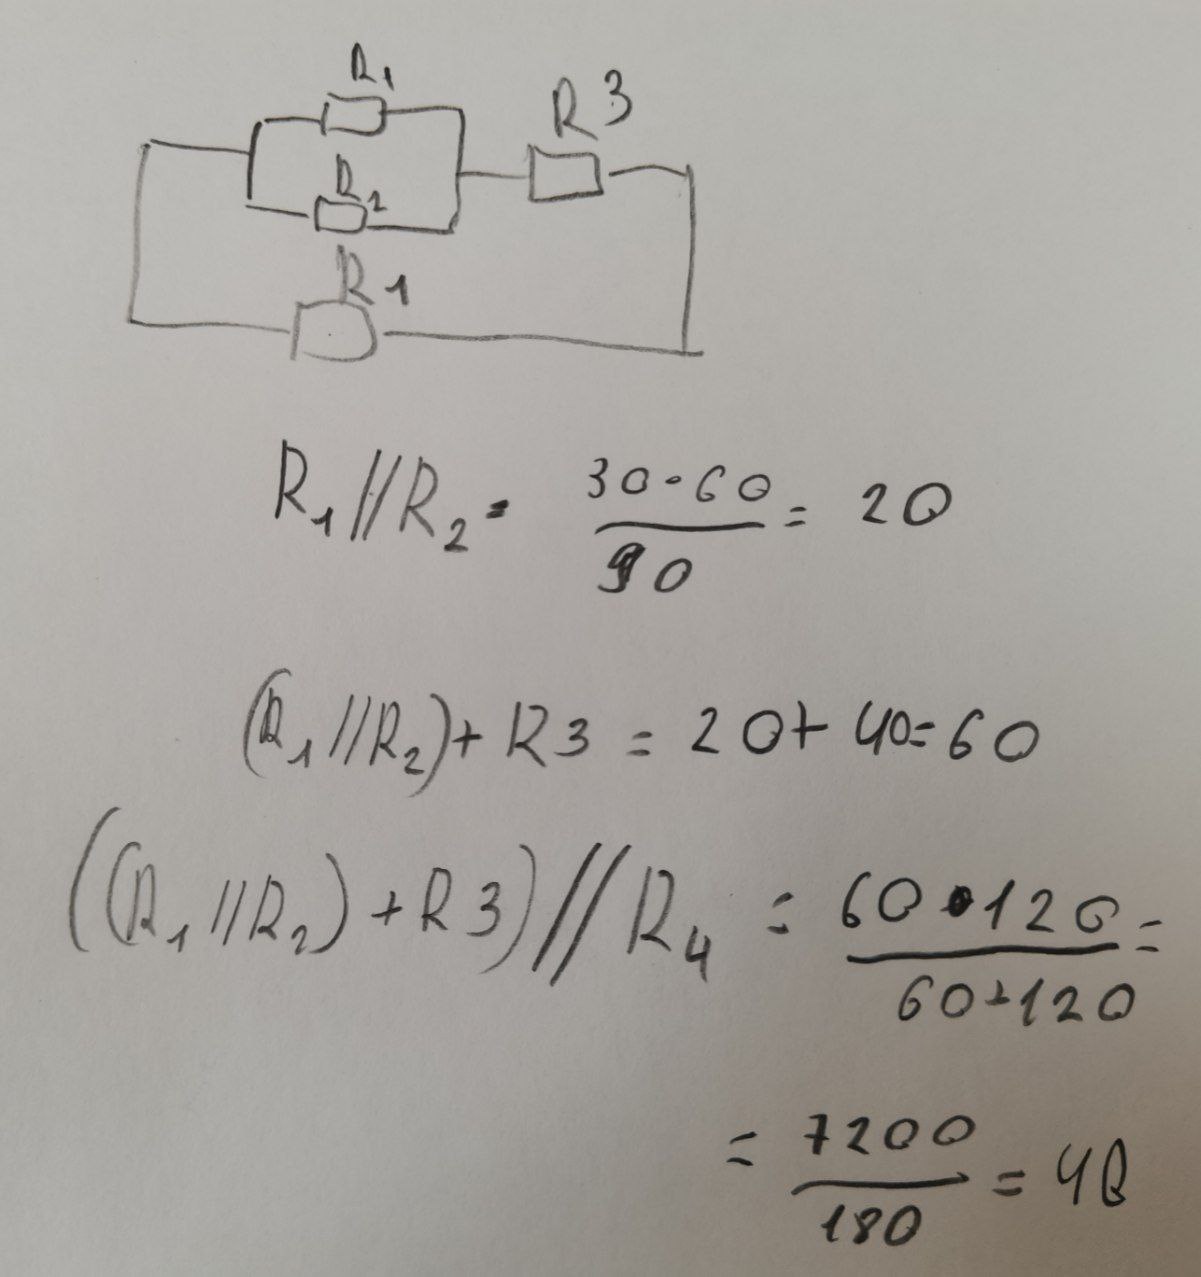 R1
R3
R2
R1
R1//R2 = 30·60/90 = 20
(R1//R2)+R3 = 20+40=60
((R1//R2)+R3)//R4 = 60·120/60+120 =
= 7200/180 = 40